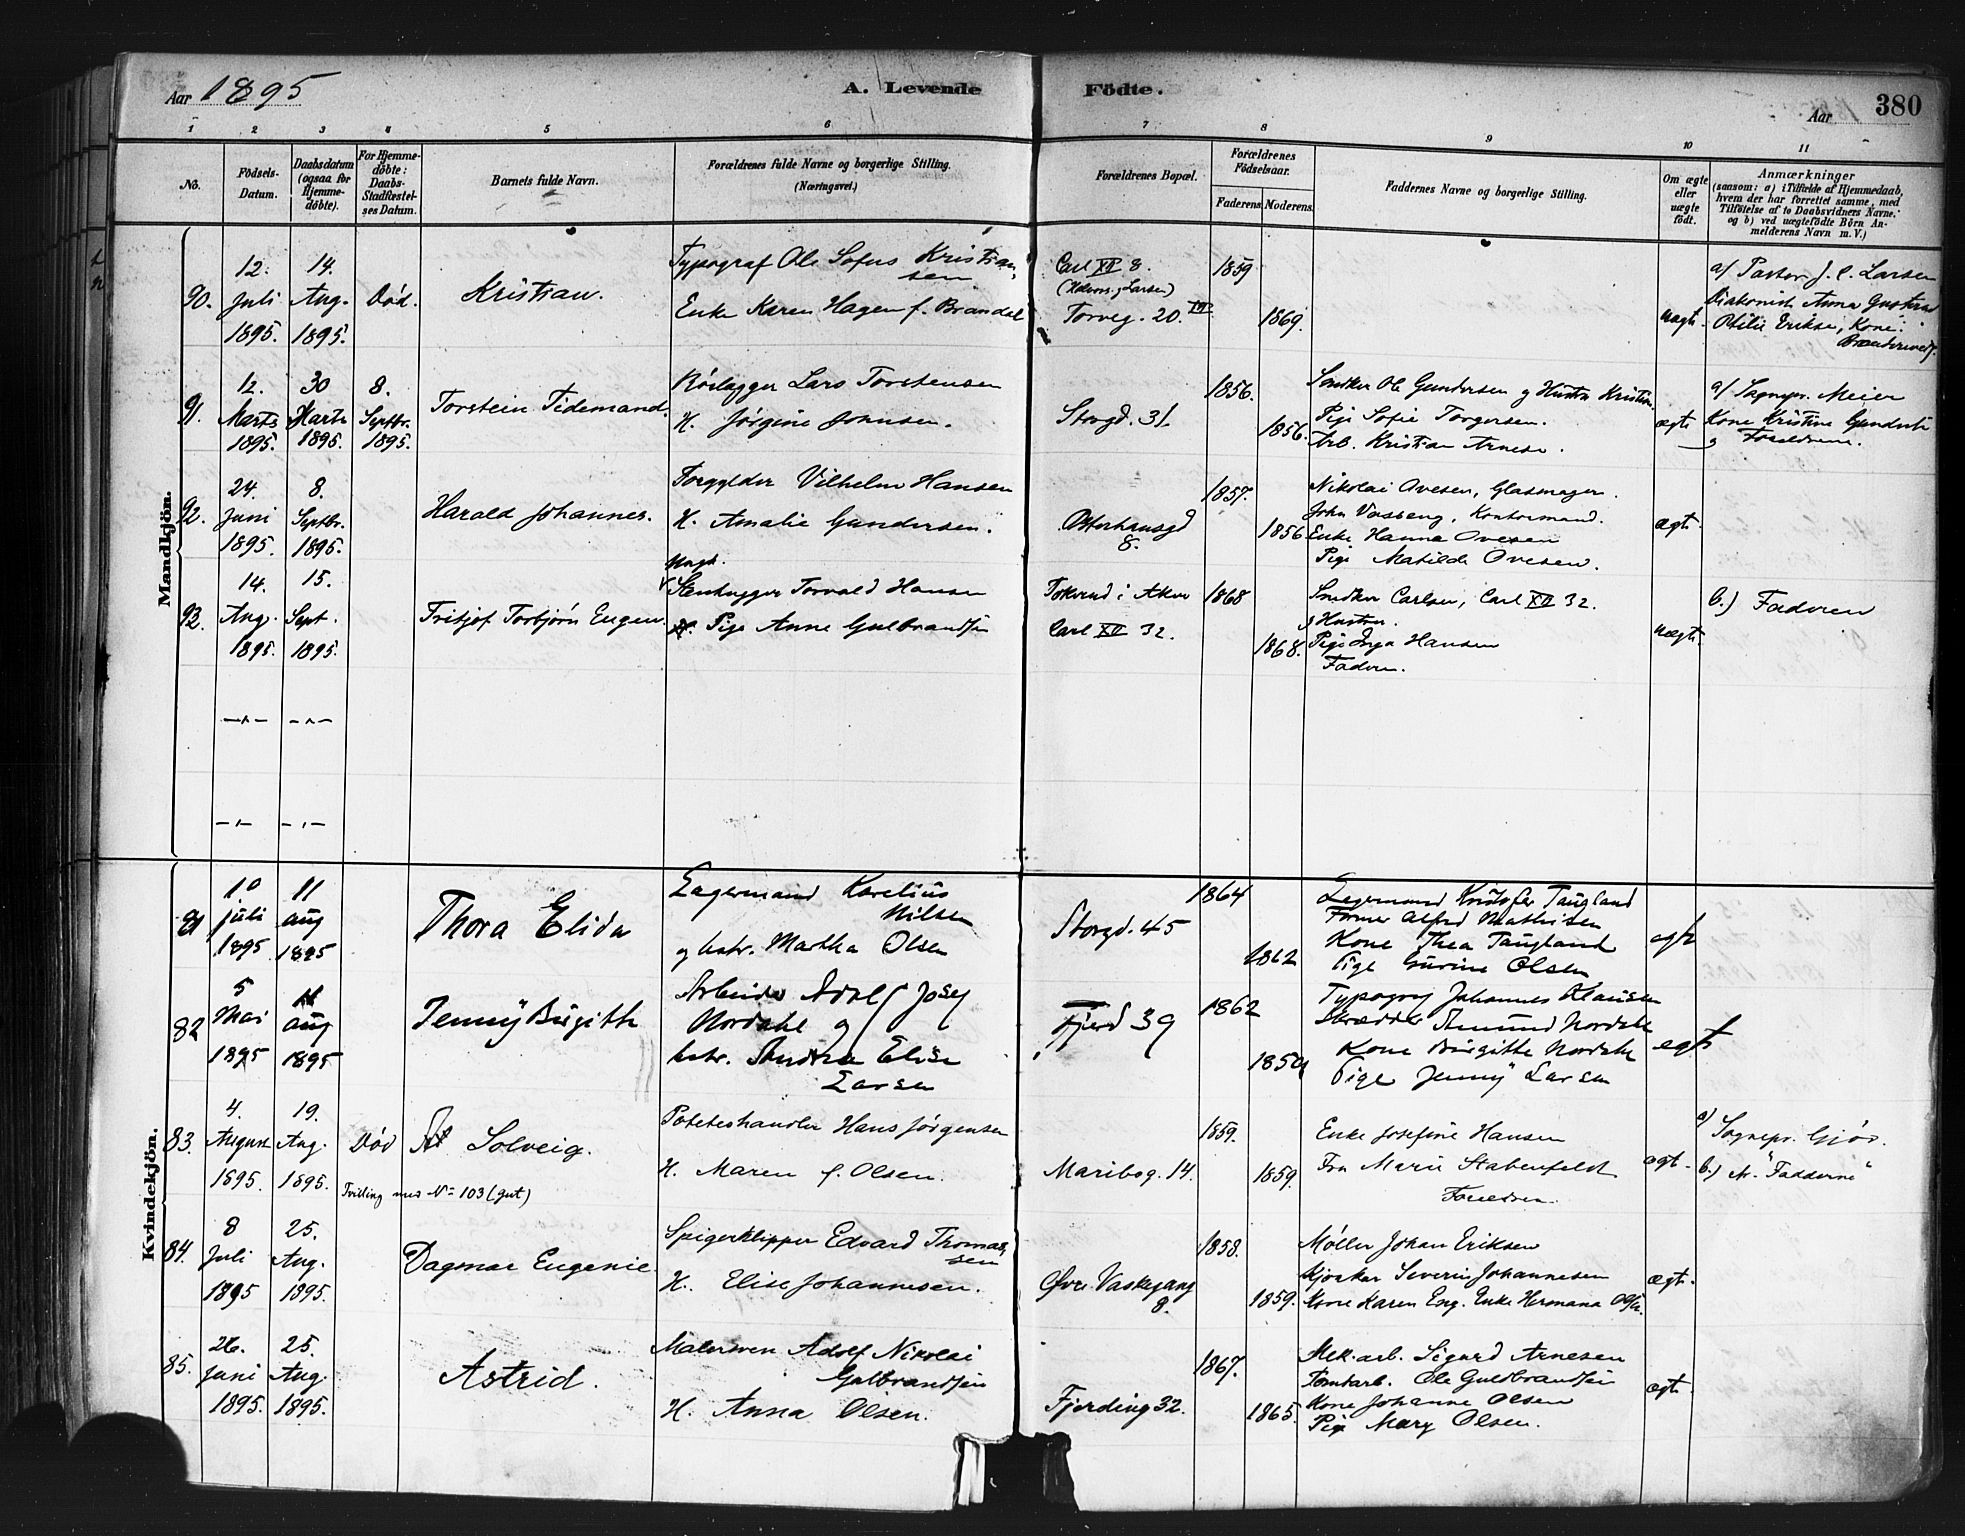 Aar 1895
A. Levende Födte.
Aar
380
1 2 3 4 5 6 7 8 9 10 11
No.
Födsels-Datum.
Daabsdatum (ogsaa for Hjemme-döbte).
For Hjemme-döbte: Daabs-Stadfæstel-ses Datum.
Barnets fulde Navn.
Forældrenes fulde Navne og borgerlige Stilling.
(Næringsvei.)
Forældrenes Bopæl.
Forældrenes Födselsaar.
Faderens. Moderens.
Faddernes Navne og borgerlige Stilling.
Om ægte eller uægte födt.
Anmærkninger
(saasom: a) i Tilfælde af Hjemmedaab,
hvem der har forrettet samme, med
Tilföielse af to Daabsvidners Navne.
og b) ved uægtefödte Börn An-
melderens Navn m. V.)
Mandkjön.
90. 12. Juli 1895. 14. Aug. 1895. Död. Kristian.
Typograf Ole Sofus Kristiansen
Enke Karen Hagen f. Brandal
Carl XII 8.
Torvg. 20.
1859 1869. uægte.
a/ Pastor J. C. Larsen
Diakonisse Anna
91. 12. Marts 1895. 30 Marts 1895. 8. Septbr. 1895. Torstein Tidemand.
Rörlægger Lars Torstensen
H. Jörgine Johnsen.
Storgd. 31.
1856. 1856.
Snedker Ole Gundersen og Hustru Kristine
Pige Sofie Torgersen.
Arb. Kristian Arnesen.
ægte
a/ Sognepr. Meier
Kone Kristine Gundersen
og Forældrene.
92. 24. Juni 1895. 8. Septbr. 1895. Harald Johannes.
Forgylder Vilhelm Hansen
H. Amalie Gundersen.
Osterhausgd 8.
1857. 1856
Nikolai Ovesen, Glasmager.
John Vasseng, Kontormand.
Enke Hanna Ovesen
Pige Matilde Ovesen.
ægte
93. 14. Aug. 1895. 15. Sept. 1895. Fritjof Torbjörn Eugen.
Ungk.
Stenhugger Torvald Hansen
Pige Anne Gulbrandsen
i Aker
Carl XII 32.
1868 1868.
Snedker Carlsen, Carl XII 32.
og Hustru.
Pige Inga Hansen
Faderen.
uægte.
b.) Faderen
Kvindekjön.
81 10 juli 1895 11 aug 1895 Thora Elida
Lagermand Karelius Nilsen
og hstr. Martha Olsen
Storgd. 45
1864 1862
Lagermand Kristofer Taugland
Former Alfred Mathisen
Kone Thea Taugland
Pige Gurine Olsen
egte
82 5 Mai 1895 11 aug 1895 Jenny Birgitte
Arbeider Adolf Josef
Nordahl og
hstr. Andrea Elise
Larsen
Fjerd 39
1862 1859
Typograf Johannes Klausen
Skrædder Amund Nordahl
Kone Birgitte Nordahl
Pige Jenny Larsen
egte
83. 4. August 1895. 19. Aug. 1895. Död Solveig.
Tvilling med No 103 (gut)
Poteteshandler Hans Jörgensen
H. Maren f. Olsen.
Maribog. 14.
1859. 1859.
Enke Josefine Hansen
Fru Marie Stabenfeldt
Forældrene.
ægte.
a) Sognepr. Gjör.
b.) "Fadderne"
84. 8 Juli 1895 25. Aug. 1895. Dagmar Eugenie
Spigerklipper Edvard Thomassen
H. Elise Johannesen.
Øvre Vaskegang 8.
1858. 1859.
Møller Johan Eriksen
Severin Johannesen
Kone Karen Eng. Enke Hermana Olsen.
ægte.
85. 26. Juni 1895. 25. Aug. 1895. Astrid.
Malersven Adolf Nikolai
Gulbrandsen
H. Anna Olsen.
Fjerding 32.
1867. 1865.
Mek. arb. Sigurd Arnesen
Tomtarb. Ole Guldbrandsen
Kone Johanne Olsen
Pige Mary Olsen.
ægte.